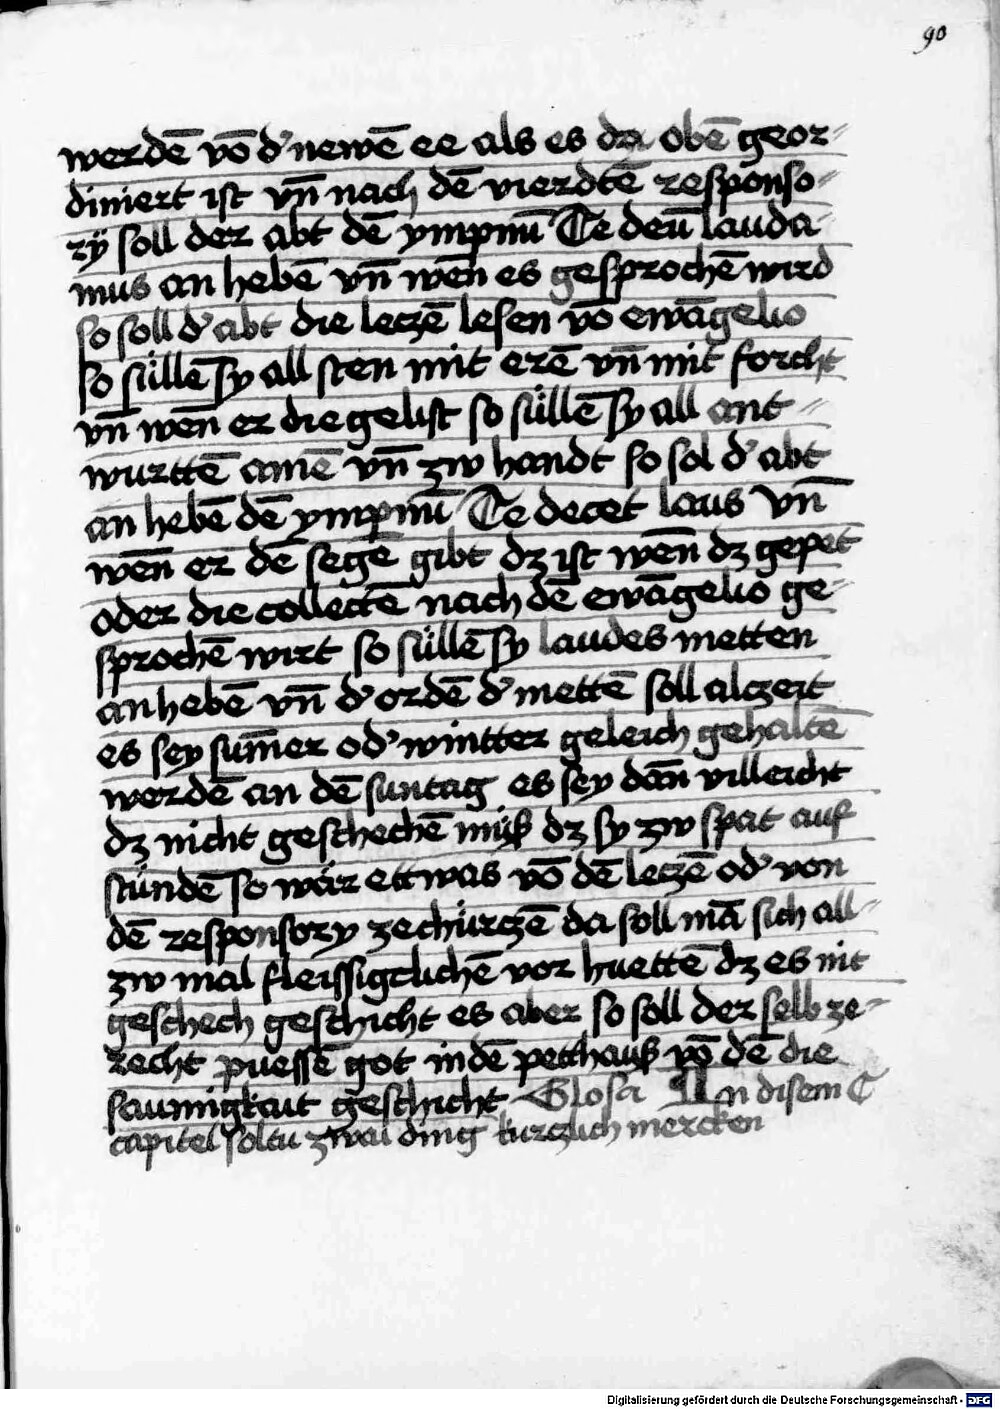 90
werdē vō d' newē ee als es da obē geor⸗
diniert ist vn̄ nach dē vierdtē responso⸗
rÿ soll der abt dē ympnū Te deū lauda⸗
mus an hebē vn̄ wēn es gesprochē wird
so soll d' abt die leczē lesen vō ewāgelio
so süllē sy all sten mit erē vn̄ mit forcht
vn̄ wēn er die gelist so süllē sy all ant⸗
wurttē amē vn̄ zw handt so sol d' abt
an hebē dē ympnū Te decet laus vn̄
wēn er dē segē gibt dz ist wēn dz gepet
oder die collectē nach dē ewāgelio ge⸗
sprochē wirt so süllē sy laudes metten
an hebē vn̄ d' ordē d' mettē soll alczeit
es sey sum̄er od' wintter geleich gehaltē
werdē an dē suntag es sey dān villeicht
dz nicht geschechē müß dz sy zw spat auf
stündē so wär ettwas vō dē leczē od' von
dē responsory zechürczē da soll mā sich all⸗
zw mal fleissigclichē vor huettē dz es nit
geschech geschicht es aber so soll der selb ze⸗
recht puessē got in dē petthauß vō dē die
saumigkait geschicht Glosa In disem C
capitel soltu zwai ding kurczlich mercken
Digitalisierung gefördert durch die Deutsche Forschungsgemeinschaft - DFG